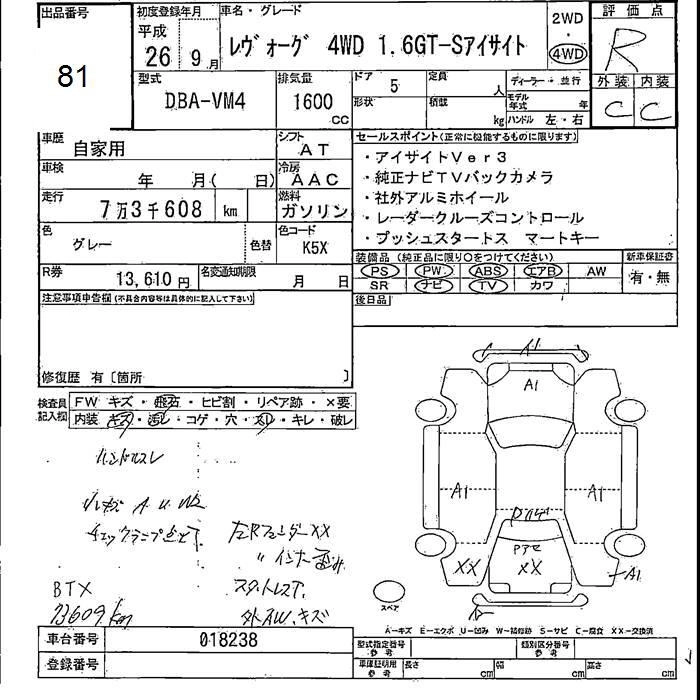 出品番号
81
初度登録年月
平成
26 9 月
車名・グレード
レヴォーグ 4WD 1.6GT-Sアイサイト
2WD
・
4WD
評価点
R
外装 内装
C C
型式
DBA-VM4
排気量
1600
cc
ドア 5
形状
定員 人
積載 kg
ディーラー・並行
モデル年式 年
ハンドル 左・右
車歴
自家用
シフト
AT
車検
年 月( 日)
冷房
AAC
走行
7万3千608 km
燃料
ガソリン
色
グレー
色替
色コード
K5X
R券 13,610円
名変通知期限
月 日
セールスポイント(正常に機能するものに限ります)
・アイサイトVer3
・純正ナビTVバックカメラ
・社外アルミホイール
・レーダークルーズコントロール
・プッシュスタートス マートキー
装備品(純正品に限り○をつけてください)
PS PW ABS エアB AW
SR ナビ TV カワ
新車保証書
有・無
後日品
注意事項申告欄(不具合内容等は具体的に記入して下さい)
修復歴 有〔箇所 〕
検査員記入欄
FW キズ・飛石・ヒビ割・リペア跡・×要
内装 キズ・汚レ・コゲ・穴・スレ・キレ・破レ
ハンドルスレ
A U W2
チェックランプ点灯
左Rフェンダー XX
〃 インナー
BTX
73609km
外AW.キズ
A1
A1
A1
XX
XX
A1
スペア
A-キズ E-エクボ U-凹み W-補修跡 S-サビ C-腐食 XX-交換済
車台番号 018238
登録番号
型式指定番号 参考
類別区分番号 参考
車庫証明用 参考
長さ cm
幅 cm
高さ cm